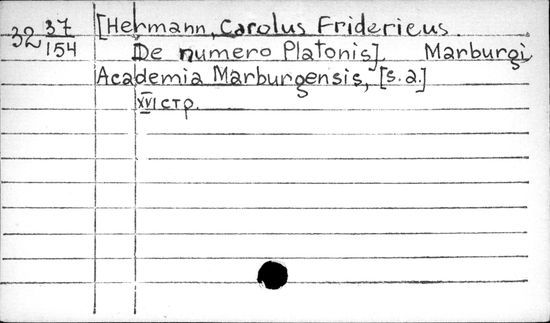 32 37/154 [Hermann, Carolus Fridericus.
De numero Platonis]. Marburgi
Academia Marburgensis, [s. a.]
XVI стр.